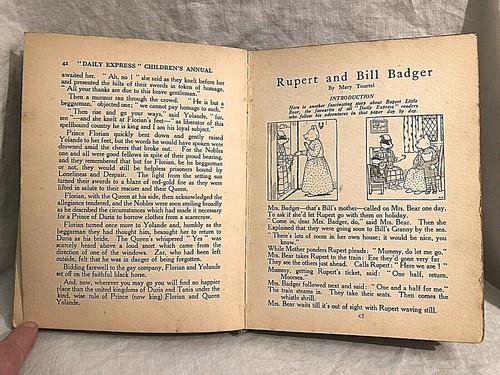 42 "DAILY EXPRESS" CHILDREN'S ANNUAL
awaited her. "Ah, no!" she said as they knelt before her
and presented the hilts of their swords in token of homage.
"All your thanks are due to this brave gentleman."
Then a murmur ran through the crowd. "He is but a
beggarman," objected one; "we cannot pay homage to such."
"Then rise and go your ways," said Yolande, "for,
see"—and she knelt at Florian's feet—"as liberator of this
spellbound country he is king and I am his loyal subject."
Prince Florian quickly bent down and gently raised
Yolande to her feet, but the words he would have spoken were
drowned amid the cheers that broke out. For the Nobles
one and all were good fellows in spite of their proud bearing,
and they remembered that but for Florian, he be beggarman
or not, they would still be helpless prisoners bound by
Loneliness and Despair. The light from the setting sun
turned their swords to a blaze of red-gold fire as they were
lifted in salute to their rescuer and their Queen.
Florian, with the Queen at his side, then acknowledged the
allegiance tendered, and the Nobles were soon smiling broadly
as he described the circumstances which had made it necessary
for a Prince of Daria to borrow clothes from a scarecrow.
Florian turned once more to Yolande and, humbly as the
beggarman they had thought him, besought her to return to
Duria as his bride. The Queen's whispered "Yes" was
scarcely heard above a loud snort which came from the
direction of one of the windows. Zar, who had been left
outside, felt that he was in danger of being forgotten.
Bidding farewell to the gay company, Florian and Yolande
set off on the faithful black horse.
And, now, wherever you may go you will find no happier
place than the united kingdoms of Duria and Tania under the
kind, wise rule of Prince (now king) Florian and Queen
Yolande.
Rupert and Bill Badger
By Mary Tourtel
INTRODUCTION
Here is another fascinating story about Rupert Little
Bear, the favourite of all "Daily Express" readers
who follow his adventures in that paper day by day.
Mrs. Badger—that's Bill's mother—called on Mrs. Bear one day,
To ask if she'd let Rupert go with them on holiday.
"Come in, dear Mrs. Badger, do," said Mrs. Bear. Then she
Explained that they were going soon to Bill's Granny by the sea.
"There's lots of room in her own house; it would be nice, you
know."
While Mother ponders Rupert pleads: "Mummy, do let me go."
Mrs. Bear takes Rupert to the train: Ere they'd gone very far
They see the others just ahead. Calls Rupert: "Here we are!"
Mummy, getting Rupert's ticket, said: "One half, return,
Moorsea."
Mrs. Badger followed next and said: "One and a half for me."
The train steams in. They take their seats. Then comes the
whistle shrill.
Mrs. Bear waits till it's out of sight with Rupert waving still.
43